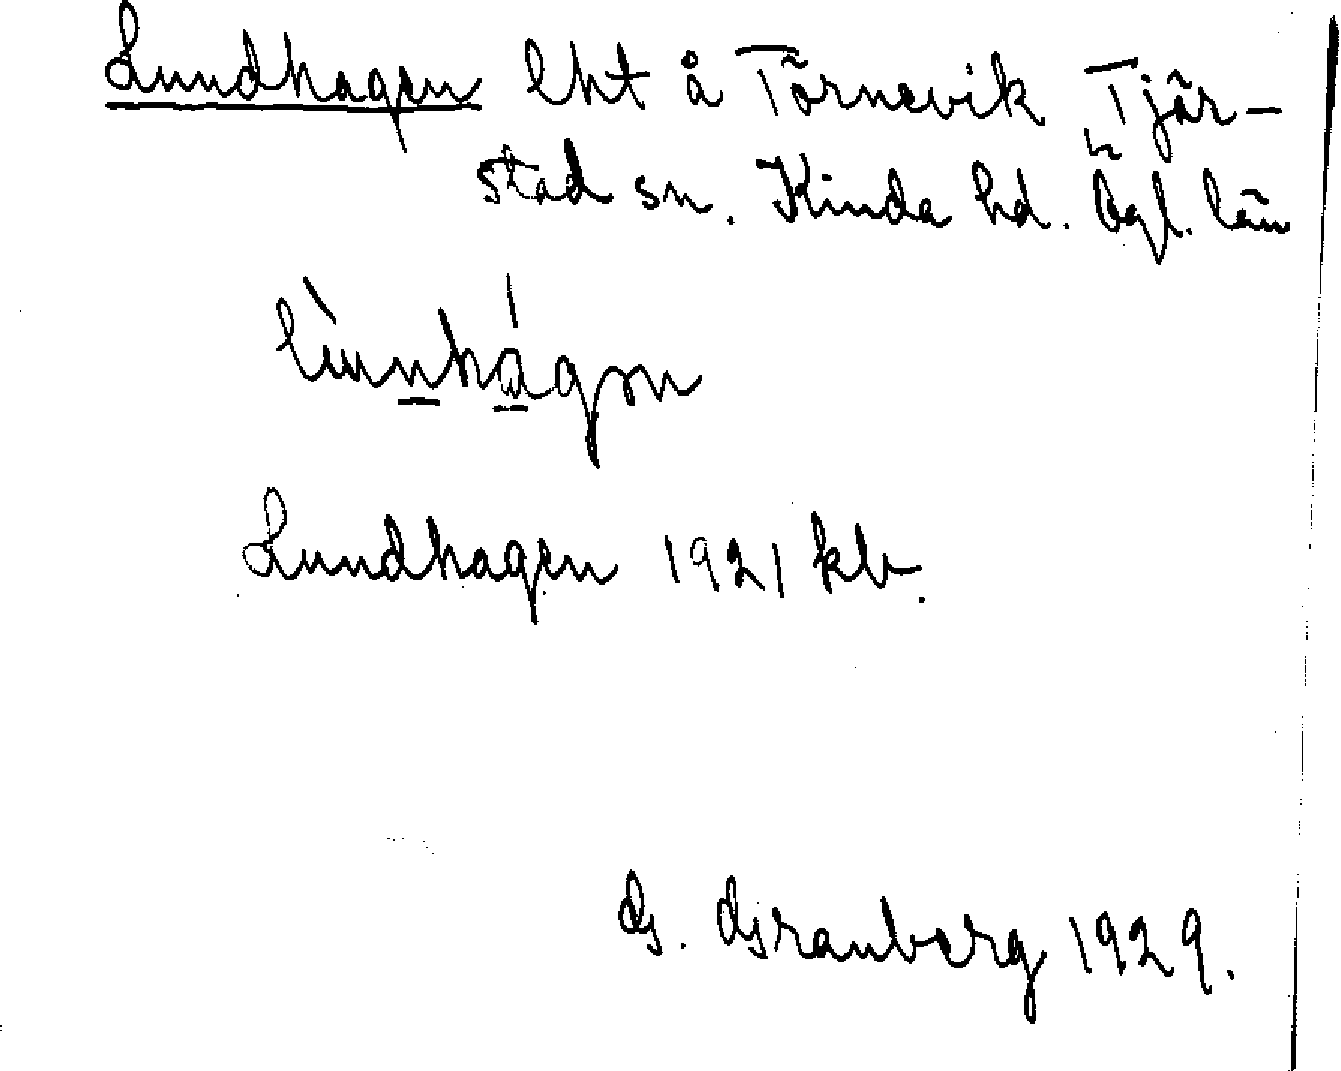 Lundhagen lht å Törnevik Tjär-
stad sn. Kinda hd. Ögl. län
Lundhagen 1921 kb.
G. Granberg 1929.